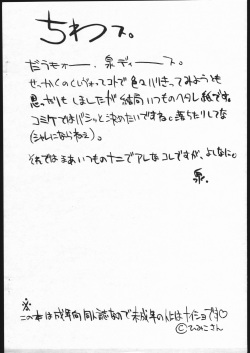 ちわス。
だうもォー、泉ディース。
せっかくのくいってコトで色々バリってみようとも
思ったりもしましたが結局いつものヘタレ絵です。
コミケではバシッと決めたいですね。落ちたりしてな
(シャレにならねェ)。
それではまあいつもの十二でアレなコレですが、よしなに。
泉.
※
この本は成年向同人誌なので未成年の人はナイショです♡
©ひみこさん